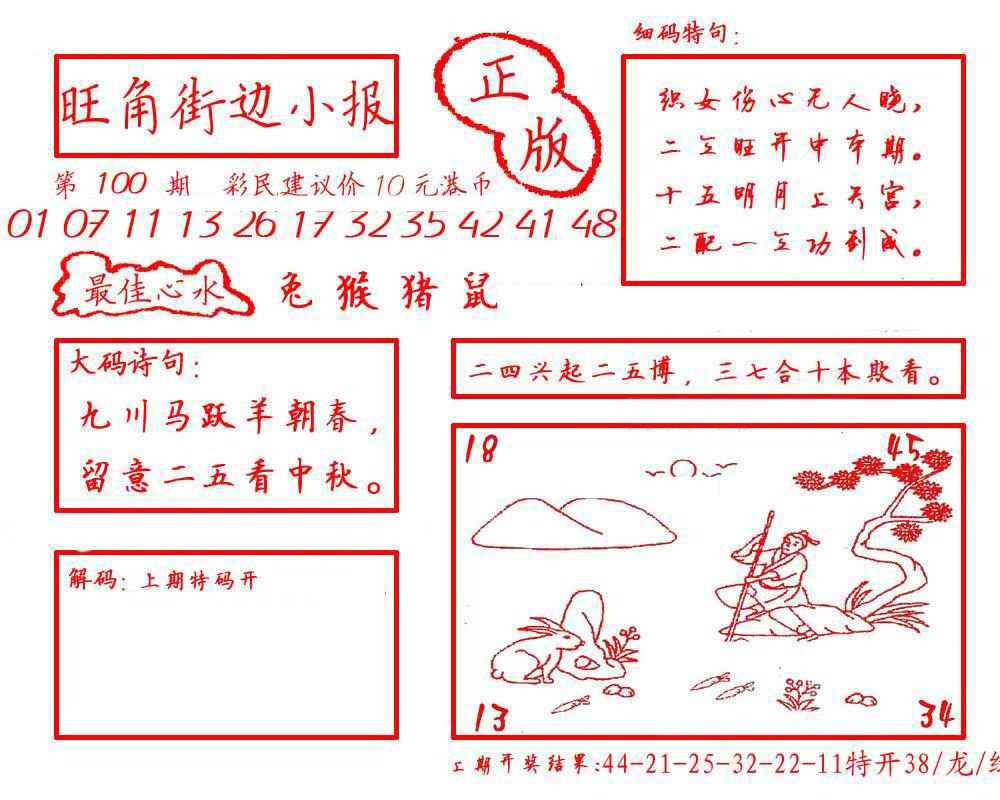 细码特句：
正版
旺角街边小报
织女伤心无人晓，
二立旺开中本期。
十五明月上天宫，
二配一立功到成。
第 100 期 彩民建议价10元港币
01 07 11 13 26 17 32 35 42 41 48
最佳心水 兔猴猪鼠
大码诗句：
九川马跃羊朝春，
留意二五看中秋。
二四兴起二五博，三七合十本欺看。
18 45
解码：上期特码开
13 34
上期开奖结果：44-21-25-32-22-11特开38/龙/